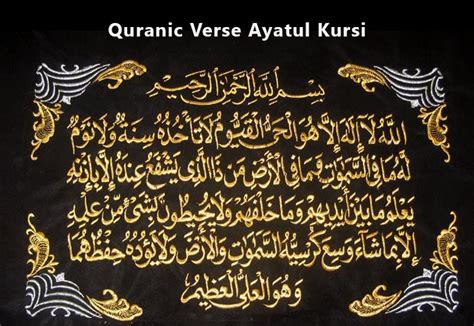 Quranic Verse Ayatul Kursi
بِسْمِ اللَّهِ الرَّحْمَنِ الرَّحِيمِ
اللَّهُ لَا إِلَهَ إِلَّا هُوَ الْحَيُّ الْقَيُّومُ لَا تَأْخُذُهُ سِنَةٌ وَلَا نَوْمٌ
لَهُ مَا فِي السَّمَوَاتِ وَمَا فِي الْأَرْضِ مَنْ ذَا الَّذِي يَشْفَعُ عِنْدَهُ إِلَّا بِإِذْنِهِ
يَعْلَمُ مَا بَيْنَ أَيْدِيهِمْ وَمَا خَلْفَهُمْ وَلَا يُحِيطُونَ بِشَيْءٍ مِنْ عِلْمِهِ
إِلَّا بِمَا شَاءَ وَسِعَ كُرْسِيُّهُ السَّمَوَاتِ وَالْأَرْضَ وَلَا يَؤُدُهُ حِفْظُهُمَا
وَهُوَ الْعَلِيُّ الْعَظِيمُ